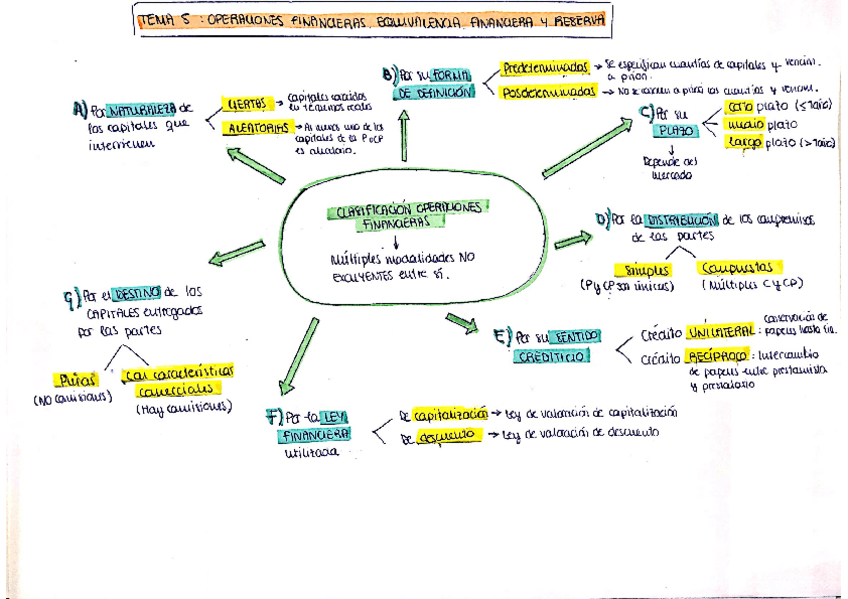 TEMA 5: OPERACIONES FINANCIERAS. EQUIVALENCIA FINANCIERA Y RESERVA
A) Por NATURALEZA de
los capitales que
intervienen
CIERTAS → Capitales conocidos
en términos reales
ALEATORIAS → Al menos uno de los
capitales de la P o CP
es aleatorio.
B) Por su FORMA
DE DEFINICIÓN
Predeterminadas → Se especifican cuantías de capitales y vencim.
a priori.
Posdeterminadas → No se conocen a priori las cuantías y vencim.
C) Por su
PLAZO
↓
Depende del
mercado
Corto plazo (≤ 1 año)
medio plazo
largo plazo (> 1 año)
CLASIFICACIÓN OPERACIONES
FINANCIERAS
↓
Múltiples modalidades NO
EXCLUYENTES entre sí.
D) Por la DISTRIBUCIÓN de los compromisos
de las partes
Simples
(P y CP son únicos)
Compuestas
(Múltiples C y CP)
E) Por su SENTIDO
CREDITICIO
Crédito UNILATERAL: conservación de
papeles hasta fin.
Crédito RECÍPROCO: Intercambio
de papeles entre prestamista
y prestatario
F) Por la LEY
FINANCIERA
utilizada
De capitalización → Ley de valoración de capitalización
De descuento → Ley de valoración de descuento
G) Por el DESTINO de los
CAPITALES entregados
por las partes
Puras
(NO comisiones)
Con características
comerciales
(Hay comisiones)